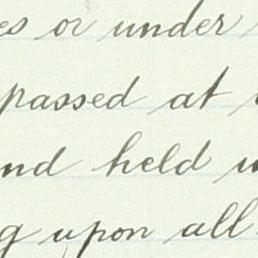 es or under
passed at
nd held
g upon all